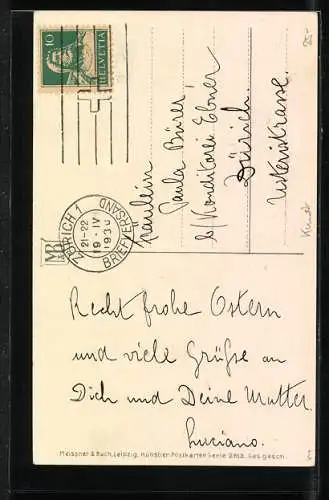 Recht frohe Ostern
und viele Grüße an
Dich und Deine Mutter.
Luciano.
Meissner & Buch, Leipzig, Künstler-Postkarten Serie Ges. gesch.
Fräulein
Paula Bürer
b/Konditorei Ebner
Zürich.
10
HELVETIA
ZÜRICH 1
21-22
19·IV
1930
BRIEFVERSAND
25-